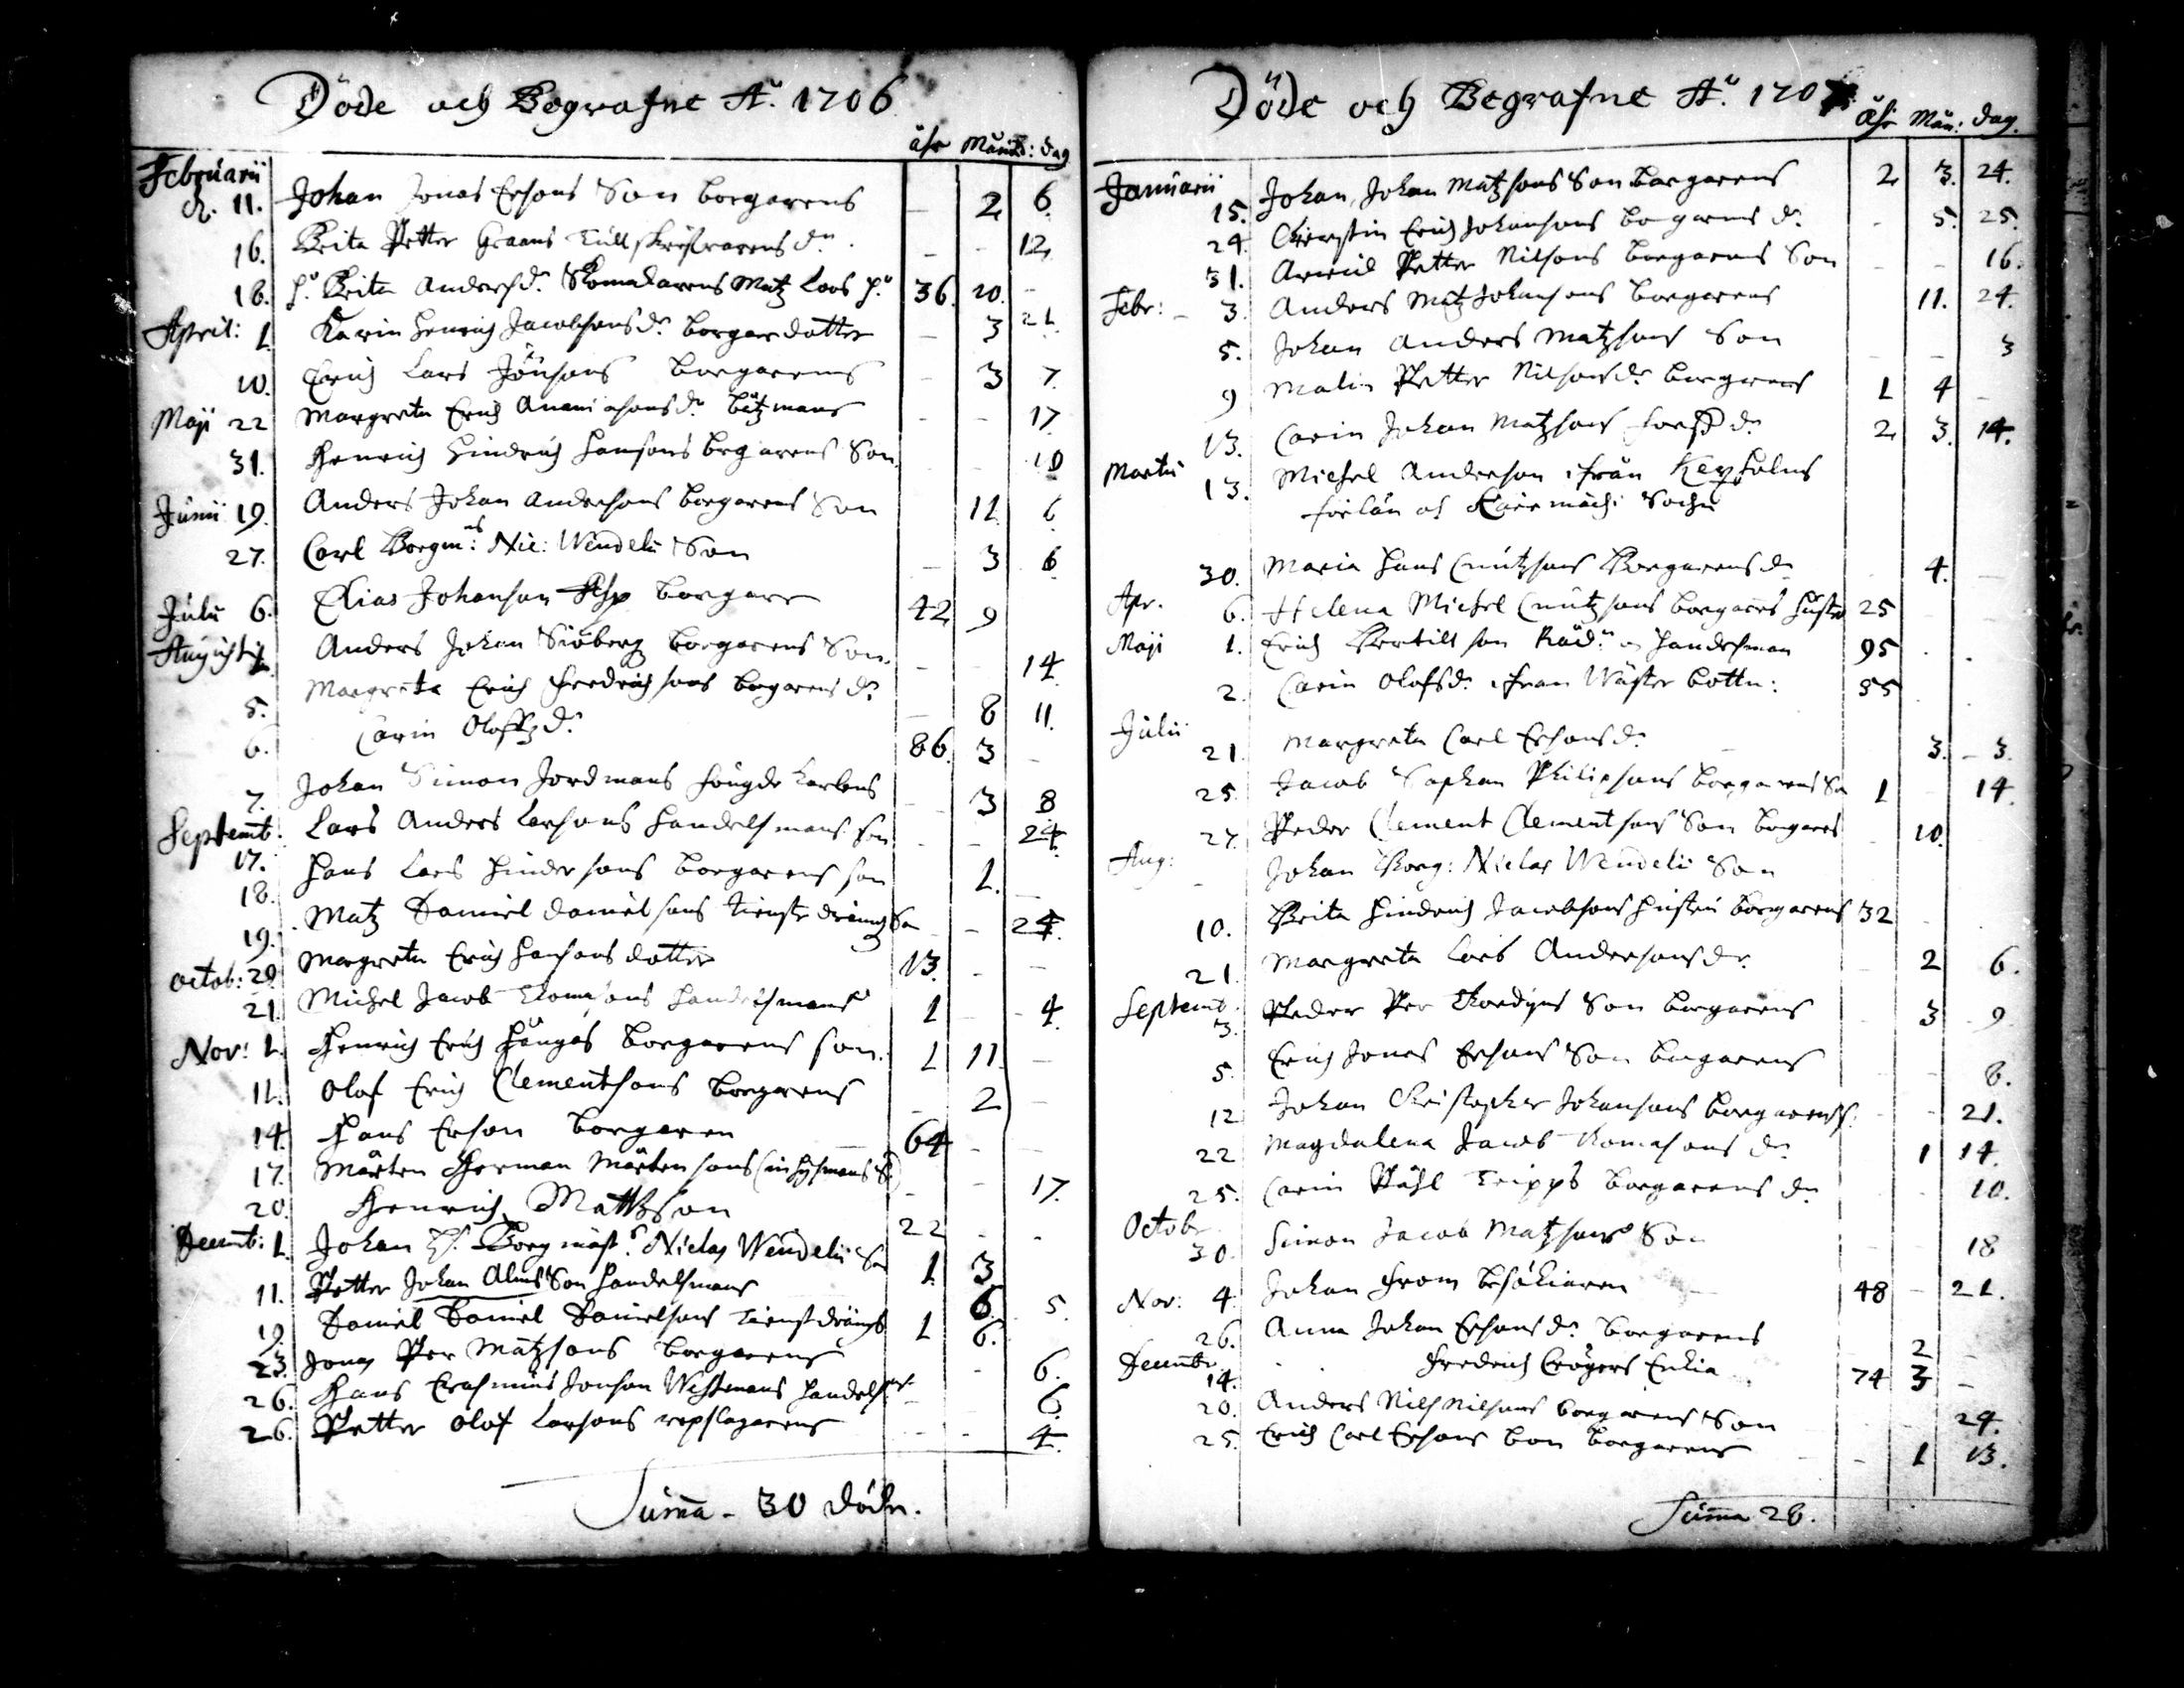 Döde och Begrafne Aᵒ. 1706
åhr Mån: dag
Februarii
d. 11. Johan Jonas Ersons Son borgarens – 2 6.
16. Brita Petter Graans Tullskrifvarens dr. – – 12
18. h. Brita Andersdr. Skomakarens Matz Lars h. 36. 10. –
April: 1. Karin Henrich Jacobsons dr. borgardotter – 3 21.
10. Erich Lars Jönsons borgarens – 3 7.
Maji 22 Margreta Erich Ananiæsons dr. båtzmans – – 17.
31. Henrich Hindrich Hansons borgarens Son. – – 10
Junii 19. Anders Johan Andersons borgarens Son 11 6.
27. Carl Borgm:ns Nic: Wendelii Son – 3 6
Julii 6. Elias Johanson borgare 42 9
Augusti 1. Anders Johan Siöberg borgarens Son. – – 14.
5. Margreta Erich Fredrichsons borgarens dr. – 8 11.
6. Carin Oloffzdr. 86. 3 –
7. Johan Simon Jordmans – 3 8
Septemb:
17. Lars Anders Larsons handelsmans son – – 24.
18. Hans Lars Hindersons borgarens son 1. –
19. Matz Daniel Danielsons tienstedrängs So – – 24.
Octob: 20. Margreta Erich Hansons dotter 13. – –
21. Michel Jacob Thomasons handelsmans 1 – 4.
Nov: 1. Henrich Erich Hångas borgarens son. 1 11. –
11. Olof Erich Clementsons borgarens – 2 –
14. Hans Erson borgaren 64 – –
17. Mårten Herman Mårtensons S.) – – 17.
20. Henrich Mattzson 22 – –
Decemb: 1. Johan H. Borgmäst. Niclas Wendelii So 1 3
11. Petter Johan Alms Son handelsmans 6. 5.
19. Daniel Daniel Danielsons tienstdrängs 1 6.
23. Jonas Per Matzsons borgarens – 6.
26. Hans Erasmus Jonson Westmans handelsm. – 6.
26. Petter Olof Larsons repslagarens – – 4.
Summa – 30 döde.
Döde och Begrafne Aᵒ. 1707
åhr Mån: dag.
Januarii
15. Johan, Johan Matzsons Son borgarens 2 3. 24.
24. Kierstin Erich Johansons borgarens dr. – 5. 25.
31. Petter Nilsons borgarens Son – – 16.
Febr: – 3. Anders Matz Johansons borgarens 11. 24.
5. Johan Anders Matzsons Son – – 3
9 Malin Petter Nilsons dr. borgarens 1 4 –
13. Carin Johan Matzsons dr. 2 3. 14.
Martii
13. Michel Anderson ifrån Kexholms
förlän och Sochn
30. Maria Hans Cnutzsons Borgarens dr. 4. –
Apr. 6. Helena Michel Cnutzsons borgarens hustru 25
Maji 1. Erich Bertillson Råd. och handelsman 95 . .
2. Carin Olofsdr. ifrån Wäster bottn: 55
Julii
21. Margreta Carl Ersons dr. – 3. – 3.
25. Jacob Staphan Philipsons borgarens So 1 – 14.
27. Peder Clement Clementsons Son borgares – 10.
Aug:
– Johan Borg: Niclas Wendelii Son
10. Brita Hindrich Jacobsons hustru borgarens 32 .
21. Margreta Lars Andersons dr. – 2 6.
Septemb.
3. Peder Per Thordyns Son borgarens – 3 9.
5. Erich Jonas Ersons Son borgarens – – 8.
12 Johan Christopher Johansons borgarens s. – – 21.
22 Magdalena Jacob Thomasons dr. 1 14.
25. Carin Påhl Tripps borgarens dr. – – 10.
Octobr
30. Simon Jacob Matzsons Son – – 18
Nov: 4. Johan From besökiaren 48 – 21.
26. Anna Johan Ersons dr. borgarens 2 –
Decemb.
14. Fredrich Crögers Enkia 74 3 –
20. Anders Nils Nilsons borgarens Son 24.
25. Erich Carl Ersons borgarens – 1 13.
Summa 28.